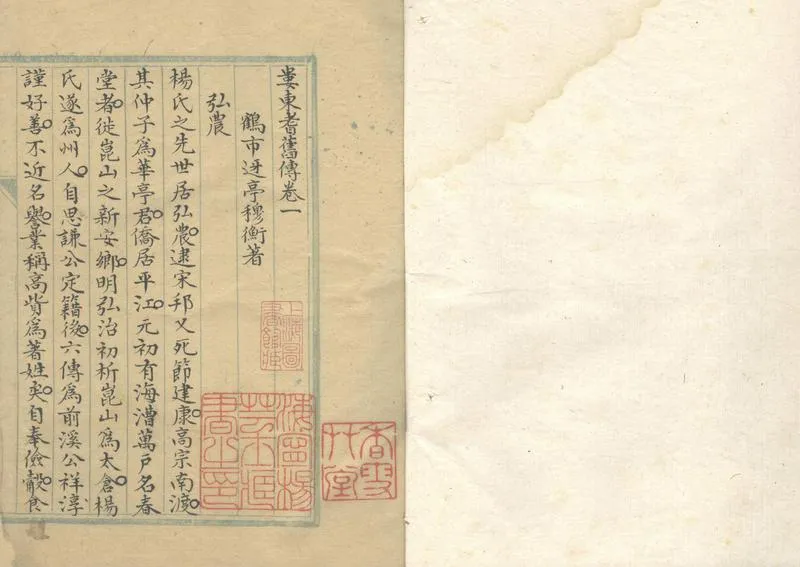 婁東耆舊傳卷一
鶴市迓亭穆衡著
弘農
楊氏之先世居弘農逮宋邦乂死節建康高宗南渡
其仲子爲華亭君僑居平江元初有海漕萬戶名春
堂者徙崑山之新安鄉明弘治初析崑山爲太倉楊
氏遂爲州人自思謙公定籍後六傳爲前溪公祥淳
謹好善不近名譽業稱高貲爲著姓矣自奉儉觳食
上海圖書館藏